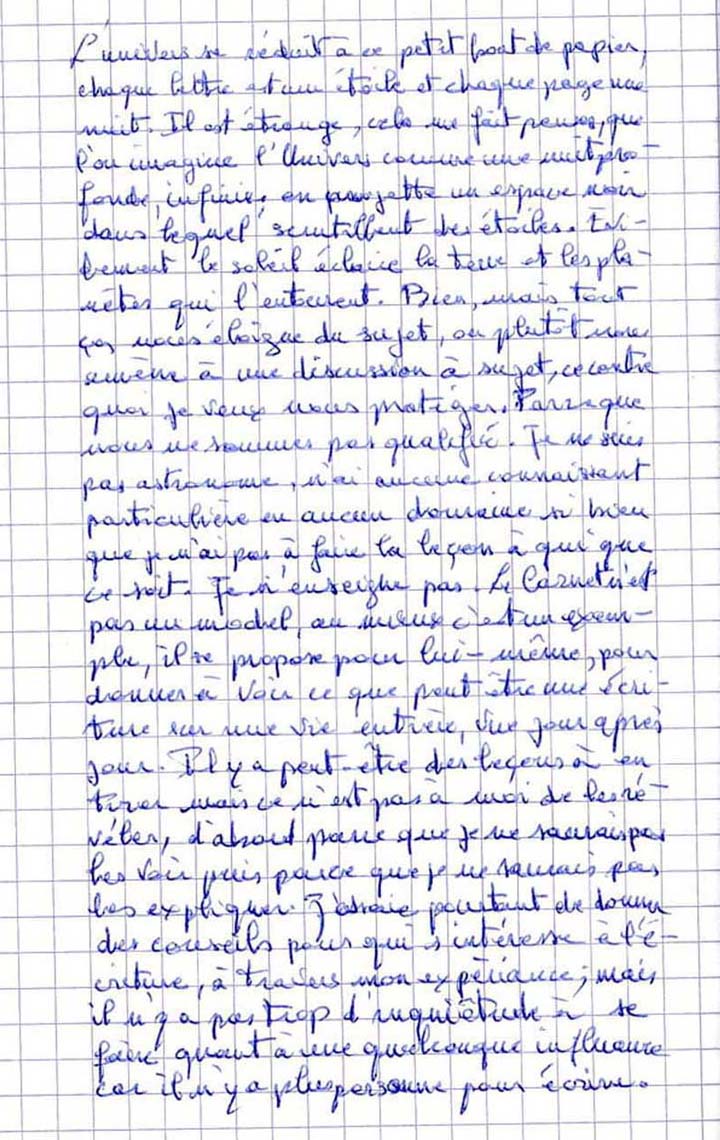 L'univers se réduit à ce petit bout de papier,
chaque lettre est une étoile et chaque page une
nuit. Il est étrange, cela me fait penser, que
l'on imagine l'Univers comme une nuit pro-
fonde, infinie, on projette un espace noir
dans lequel scintillent des étoiles. Evi-
demment le soleil éclaire la terre et les pla-
nètes qui l'entourent. Bien, mais tout
ça, nous éloigne du sujet, ou plutôt nous
amène à une discussion à sujet, ce contre
quoi je veux nous protéger. Parce que
nous ne sommes pas qualifié. Je ne suis
pas astronome, n'ai aucune connaissant
particulière en aucun domaine si bien
que je n'ai pas à faire la leçon à qui que
ce soit. Je n'enseigne pas. Le Carnet n'est
pas un model, au mieux c'est un exem-
ple, il se propose pour lui-même, pour
donner à voir ce que peut être une écri-
ture sur une vie entière, vue jour après
jour. Il y a peut-être des leçons à en
tirer mais ce n'est pas à moi de les ré-
véler, d'abord parce que je ne saurais pas
les voir puis parce que je ne saurais pas
les expliquer. J'essaie pourtant de donner
des conseils pour qui s'intéresse à l'é-
criture, à travers mon expériance; mais
il n'y a pas trop d'inquiétude à se
faire quant à une quelconque influence
car il n'y a plus personne pour écrire.